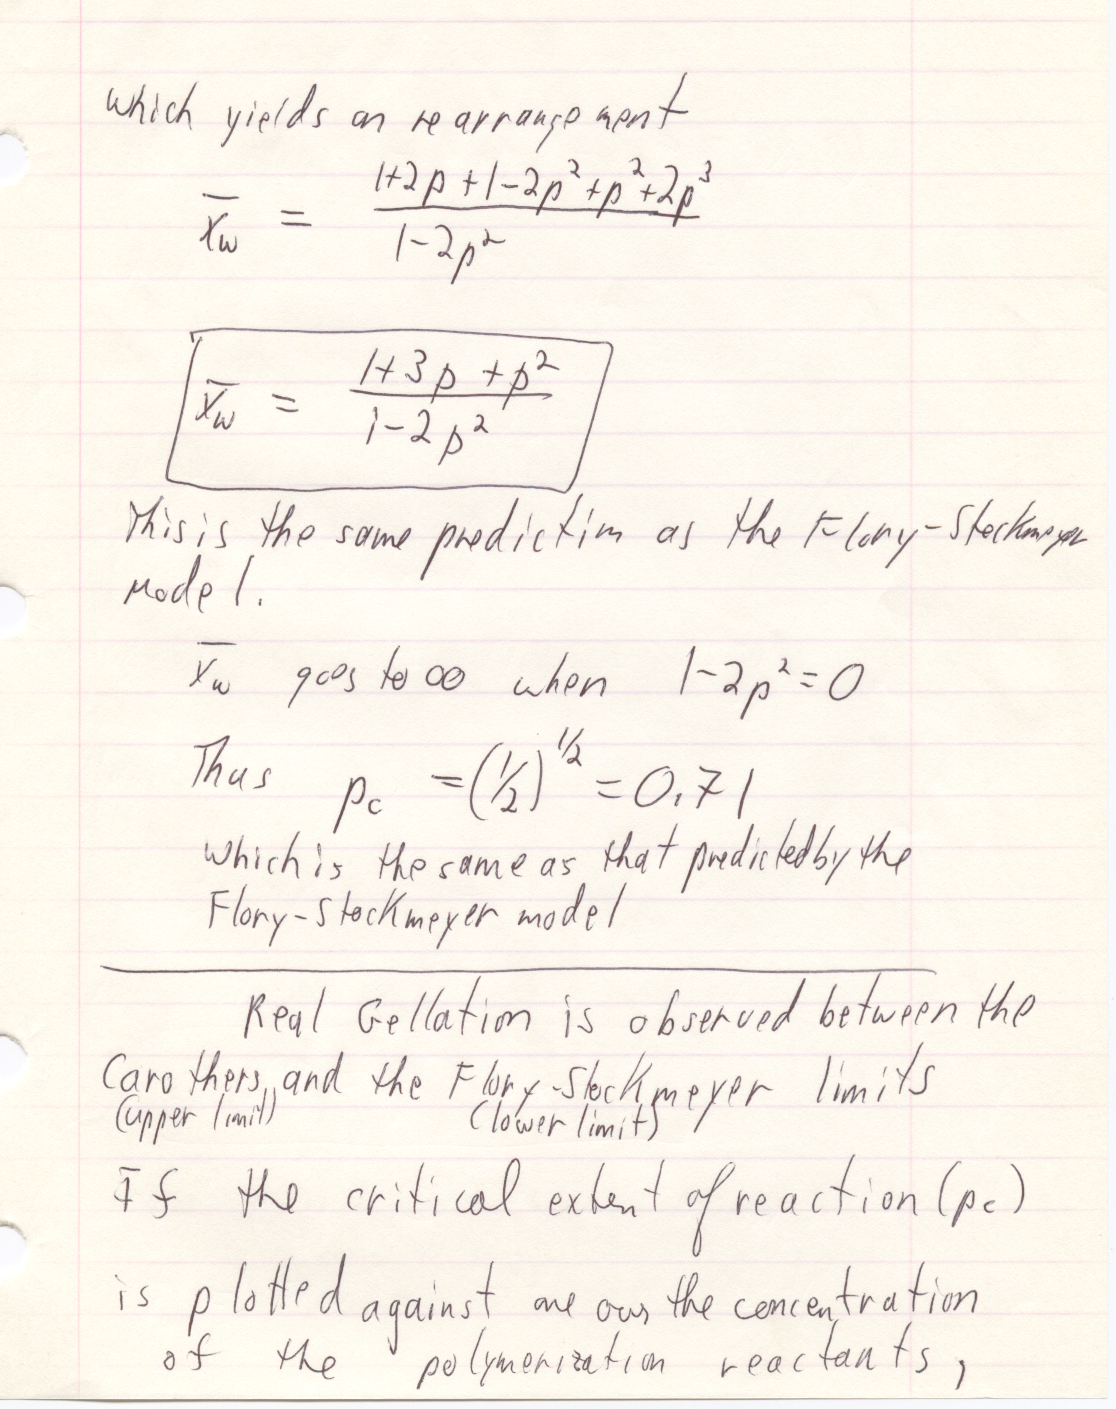 which yields on rearrangement
x̄w = (1+2p+1-2p²+p²+2p³)/(1-2p²)
x̄w = (1+3p+p²)/(1-2p²)
This is the same prediction as the Flory-Stockmeyer
model.
x̄w goes to ∞ when 1-2p²=0
Thus pc =(1/2)^1/2 = 0.71
which is the same as that predicted by the
Flory-Stockmeyer model
Real Gellation is observed between the
Carothers, and the Flory-Stockmeyer limits
(upper limit) (lower limit)
If the critical extent of reaction (pc)
is plotted against one over the concentration
of the polymerization reactants,